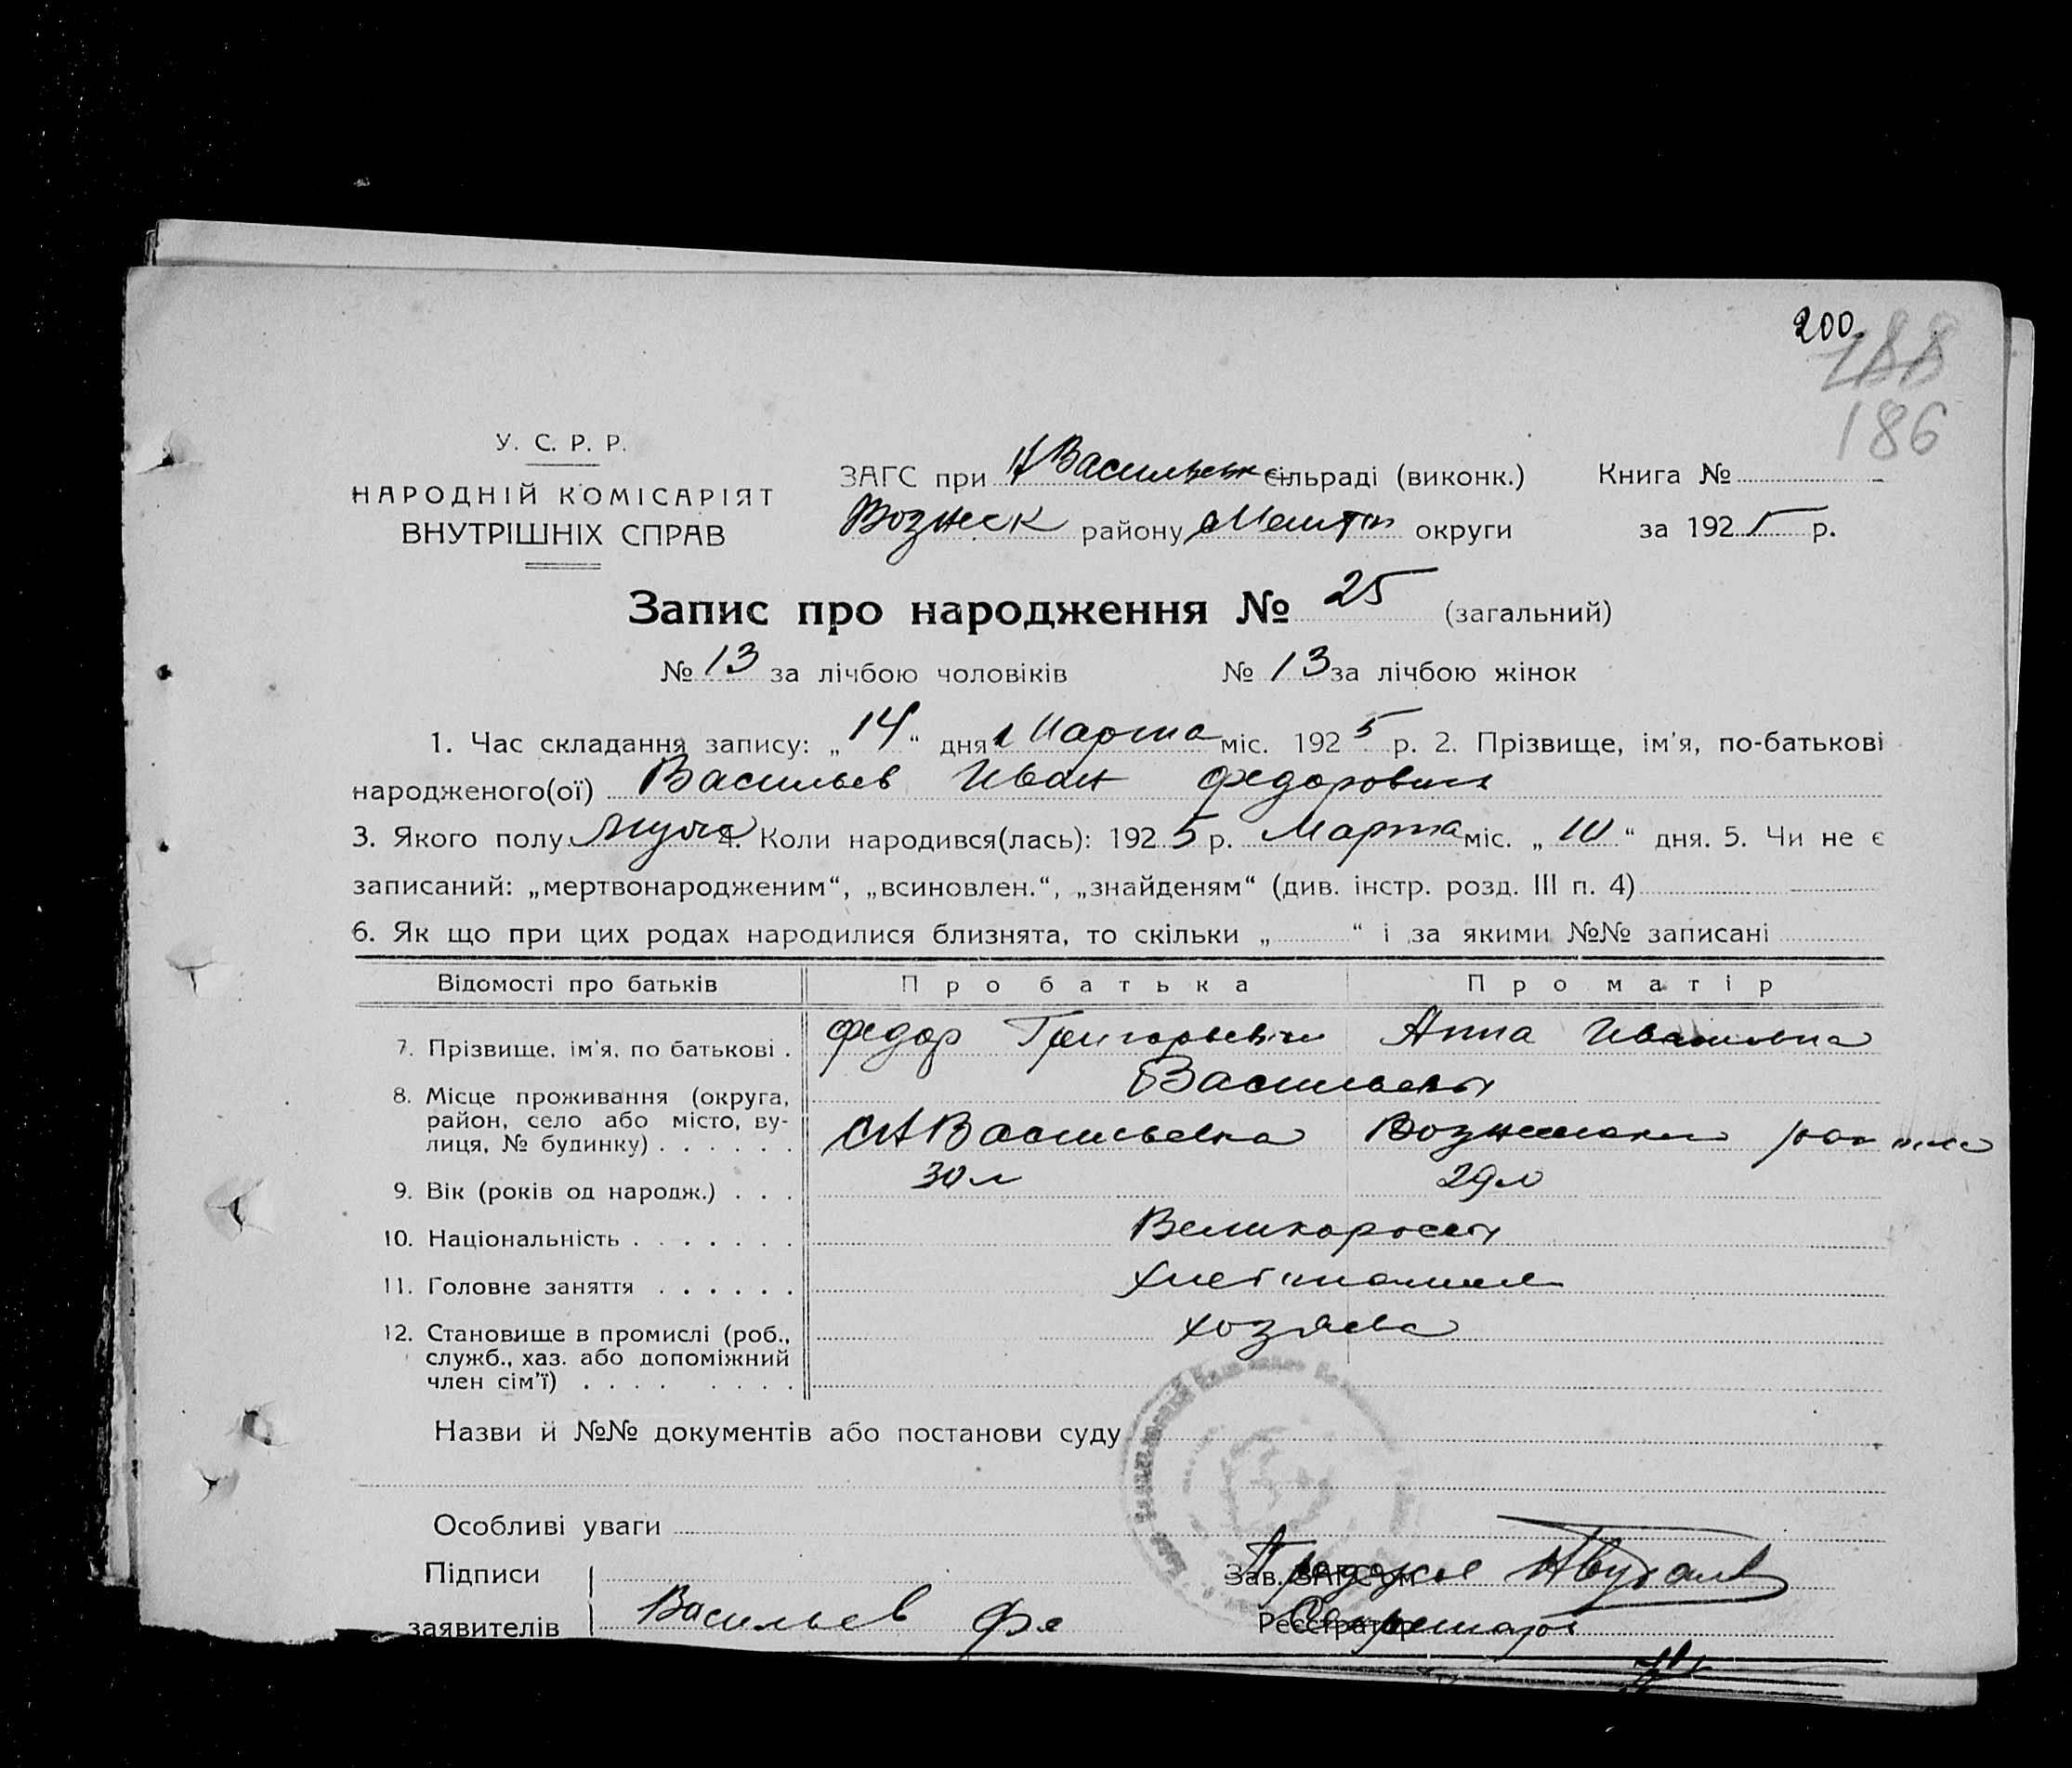 200
188
186
У. С. Р. Р.
НАРОДНІЙ КОМІСАРІЯТ
ВНУТРІШНІХ СПРАВ
ЗАГС при Н Васильевк сільраді (виконк.)
Книга №
Вознеск району округи
за 1925 р.
Запис про народження № 25 (загальний)
№ 13 за лічбою чоловіків № 13 за лічбою жінок
1. Час складання запису: „14“ дня Марта міс. 1925 р. 2. Прізвище, ім'я, по-батькові
народженого(ої) Васильев Иван Федорович
3. Якого полу муж 4. Коли народився(лась): 1925 р. Марта міс. „10“ дня. 5. Чи не є
записаний: „мертвонародженим“, „всиновлен.“, „знайденям“ (див. інстр. розд. III п. 4)
6. Як що при цих родах народилися близнята, то скільки „ “ і за якими №№ записані
Відомості про батьків Про батька Про матір
7. Прізвище, ім'я, по батькові . Федор Григорьевич Анна Ивановна
Васильевы
8. Місце проживання (округа,
район, село або місто, ву-
лиця, № будинку) . . . . . . Васильевка Вознесенск района
9. Вік (років од народж.) . . . 30 л 29 л
10. Національність . . . . . . . Великороссы
11. Головне заняття . . . . . .
12. Становище в промислі (роб.,
служб., хаз. або допоміжний
член сім'ї) . . . . . . . . хозяева
Назви й №№ документів або постанови суду
Особливі уваги
Підписи
заявителів Васильев Фе
Зав. ЗАГСом
Реєстратор Секретарь